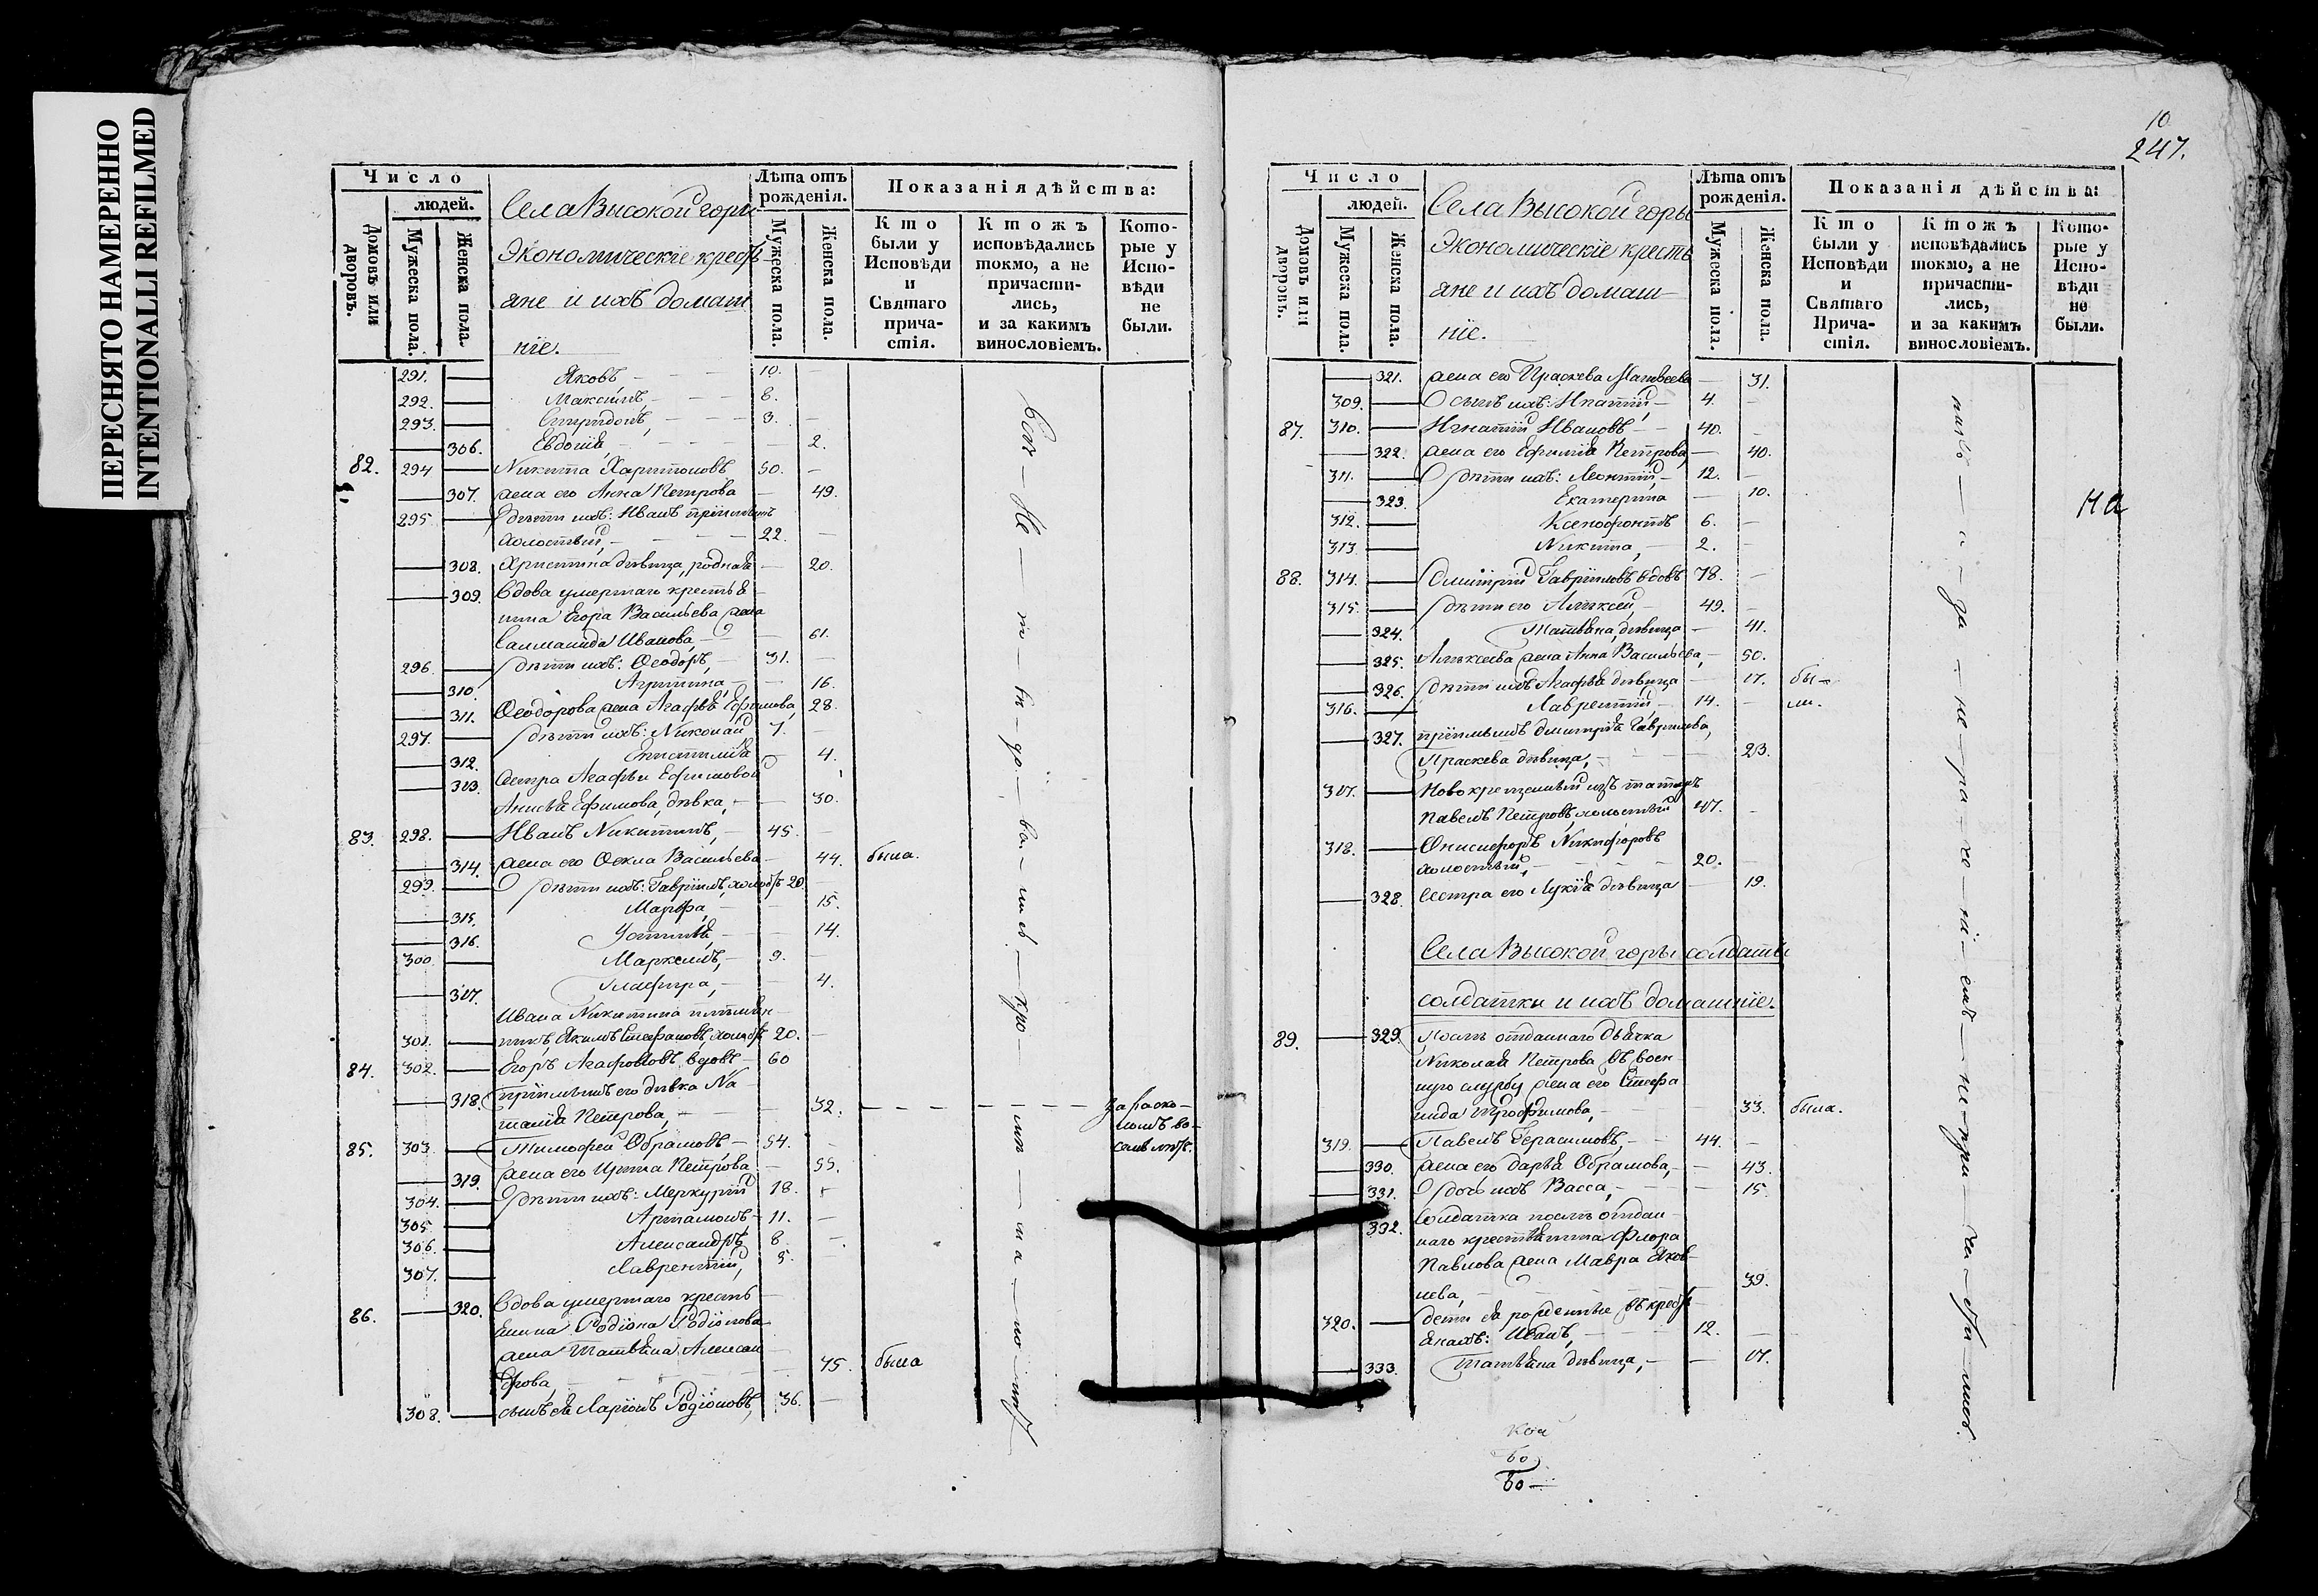 ПЕРЕСНЯТО НАМЕРЕННО
INTENTIONALLI REFILMED
Число
людей.
Домовъ или дворовъ.
Мужеска пола.
Женска пола.
Села Высокой горы
Экономическіе кресть
яне и ихъ домаш
ніе.
Лѣта отъ рожденія.
Мужеска пола.
Женска пола.
Показанія дѣйства:
Кто были у Исповѣди и Святаго причастія.
Ктожъ исповѣдались токмо, а не причастились, и за какимъ винословіемъ.
Которые у Исповѣди не были.
291. Яковъ, 10.
292. Максимъ, 8.
293. Спиридонъ, 3.
306. Евдокія, 2.
82. 294 Никита Харитоновъ 50.
307. жена его Анна Петрова 49.
295. дѣти ихъ: Иванъ пріимышъ
холостый, 22.
308. Христина дѣвица, родная 20.
309. Вдова умершаго крестья
нина Егора Васильева жена
Саломанида Иванова, 61.
296. дѣти ихъ: Ѳеодоръ, 31.
310. Агрипина, 16.
311. Ѳеодорова жена Агафья Ефимова, 28.
297. дѣти ихъ: Николай 7.
312. Епистимія 4.
313. Сестра Агафьи Ефимовой
Анисья Ефимова, дѣвка, 30.
83. 298. Иванъ Никитинъ, 45.
314. жена его Ѳекла Васильева 44. была.
299. дѣти ихъ: Гавріилъ, холос 20.
315. Марфа, 15.
316. Устинья, 14.
300. Маркелъ, 9.
317. Глафира, 4.
Ивана Никитина племян
301. никъ, Якимъ Стефановъ, холос 20.
84. 302. Егоръ Агафоновъ вдовъ 60
318. пріимышъ его дѣвка На
талія Петрова, 32. за раско-
ломъ во-
85. 303. Тимофей Обрамовъ 54. семь лѣтъ.
319. жена его Ирина Петрова 55.
304. дѣти ихъ: Меркурій 18.
305. Артамонъ 11.
306. Александръ 8.
307. Лаврентій, 5.
86. 320. Вдова умершаго кресть
янина Родіона Родіонова
жена Татьяна Алексан
дрова, 75. была
308. сынъ ея Ларіонъ Родіоновъ, 36.
10
247.
Число
людей.
Домовъ или дворовъ.
Мужеска пола.
Женска пола.
Села Высокой горы
Экономическіе кресть
яне и ихъ домаш
ніе.
Лѣта отъ рожденія.
Мужеска пола.
Женска пола.
Показанія дѣйства:
Кто были у Исповѣди и Святаго Причастія.
Ктожъ исповѣдались токмо, а не причастились, и за какимъ винословіемъ.
Которые у Исповѣди не были.
321. жена его Праскева Матвеева 31.
309. сынъ ихъ: Ипатій, 4.
87. 310. Игнатій Ивановъ 40.
322. жена его Ефимія Петрова, 40.
311. дѣти ихъ: Леонтій, 12.
323. Екатерина 10.
312. Ксенофонтъ 6.
313. Никита, 2.
88. 314. Дмитрій Гавріиловъ вдовъ 78.
315. дѣти его Алексей, 49.
324. Татьяна, дѣвица 41.
325. Алексеева жена Анна Васильева, 50.
326. дѣти ихъ Агафья дѣвица 17. бы-
316. Лаврентій, 14. ли.
327. пріимышъ Дмитрія Гаврилова,
Праскева дѣвица, 23.
317. Новокрещеный изъ татаръ
Павелъ Петровъ, холостый 47.
318. Онисифоръ Никифоровъ
холостый, 20.
328. Сестра его Лукія дѣвица 19.
Села Высокой горы солдаты
солдатки и ихъ домашніе.
89. 329. послѣ отданнаго дьячка
Николая Петрова въ воен
ную службу жена его Стефа
нида Трофимова, 33. была.
319. Павелъ Герасимовъ, 44.
330. жена его Дарья Обрамова, 43.
331. дочь ихъ Васса, 15.
332. Солдатка послѣ отдан
наго крестьянина Флора
Павлова жена Мавра Яков
лева, 39.
320. дети ея рожденные въ крест
янахъ: Иванъ, 12.
333. Татьяна дѣвица, 17.
на